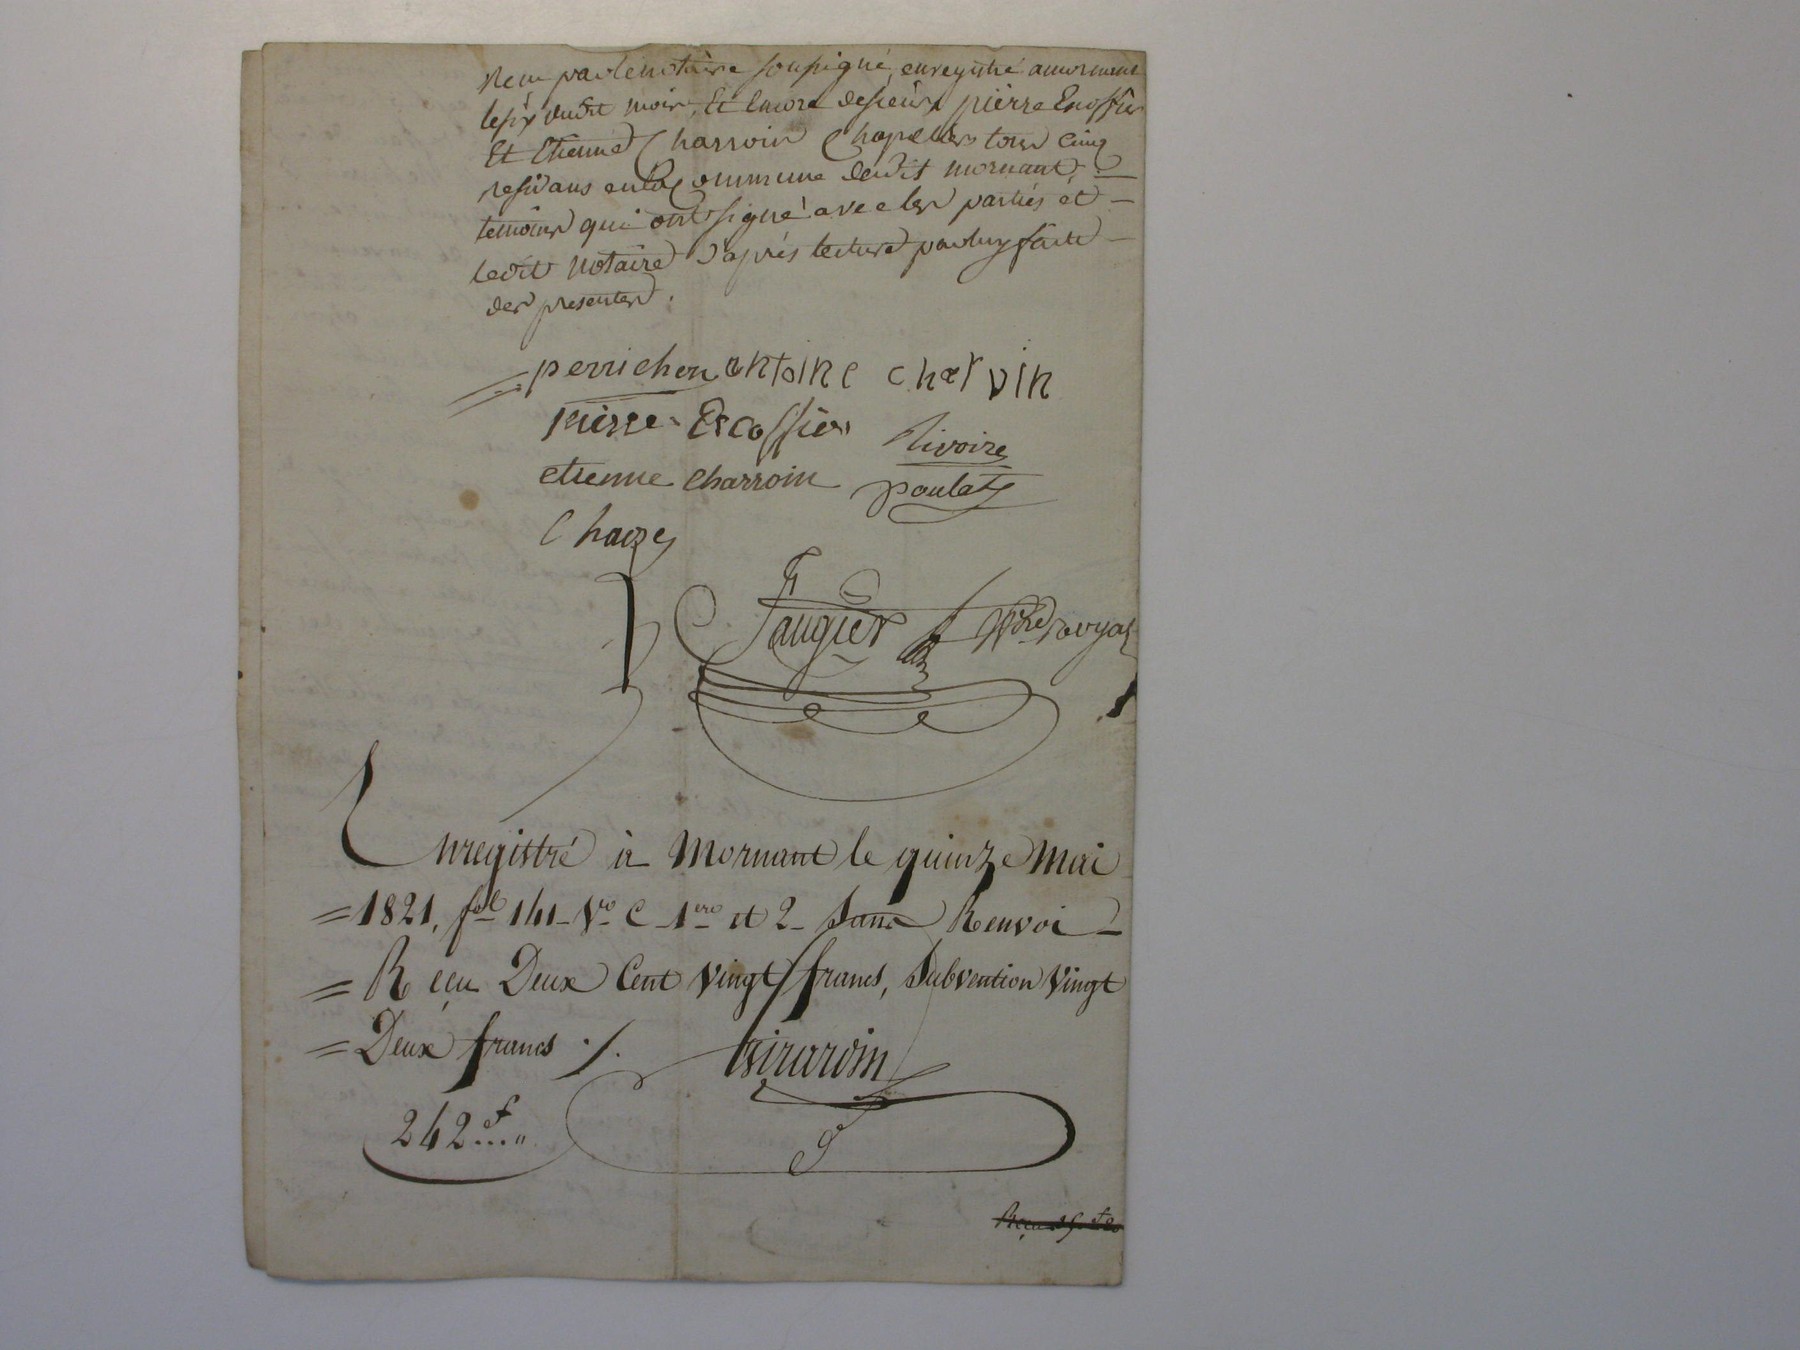 Recu par le notaire soussigné, enregistré a mornant
le six dudit mois, Et Encore de sieurs pierre Escoffier
Et Etienne Charroin Chapelliers tous cinq
residans en la Commune dudit mornant,
temoins qui ont signé avec les parties et
ledit notaire d'après lecture par luy faite
des presentes.
perrichon antoine charvin
pierre Escoffier Rivoire
etienne charroin poulat
Chaize
Faugier Nre royal
Enregistré à Mornant le quinze Mai
1821, fol 141 Vo C 1ere et 2 Sans Renvoi
Reçu Deux Cent Vingt francs, Subvention Vingt
Deux francs ./.
Girardin
242 f